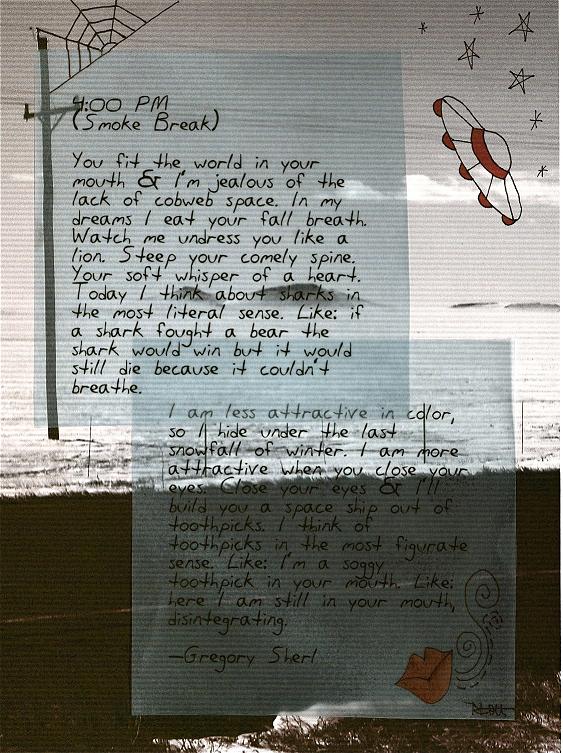 4:00 PM
(Smoke Break)
You fit the world in your
mouth & I'm jealous of the
lack of cobweb space. In my
dreams I eat your fall breath.
Watch me undress you like a
lion. Steep your comely spine.
Your soft whisper of a heart.
Today I think about sharks in
the most literal sense. Like: if
a shark fought a bear the
shark would win but it would
still die because it couldn't
breathe.
I am less attractive in color,
so I hide under the last
snowfall of winter. I am more
attractive when you close your
eyes. Close your eyes & I'll
build you a space ship out of
toothpicks. I think of
toothpicks in the most figurate
sense. Like: I'm a soggy
toothpick in your mouth. Like:
here I am still in your mouth,
disintegrating.
—Gregory Sherl